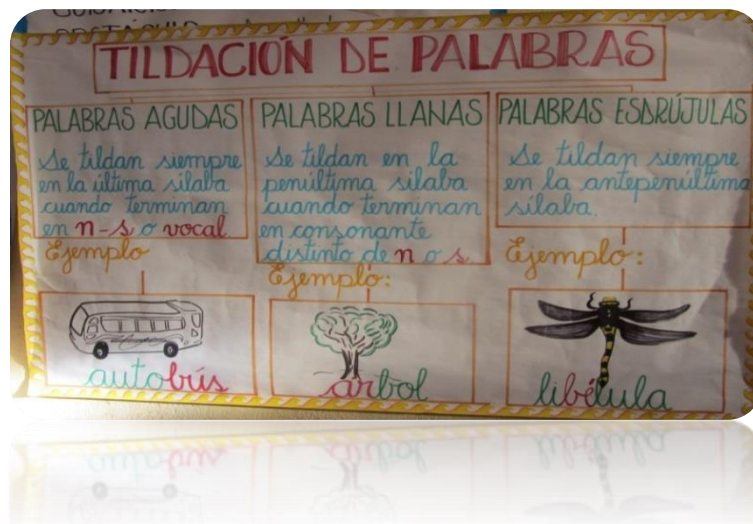 TILDACIÓN DE PALABRAS
PALABRAS AGUDAS
Se tildan siempre
en la última sílaba
cuando terminan
en n-s o vocal
Ejemplo
autobús
PALABRAS LLANAS
Se tildan en la
penúltima sílaba
cuando terminan
en consonante
distinto de n o s
Ejemplo:
árbol
PALABRAS ESDRÚJULAS
Se tildan siempre
en la antepenúltima
sílaba.
Ejemplo:
libélula